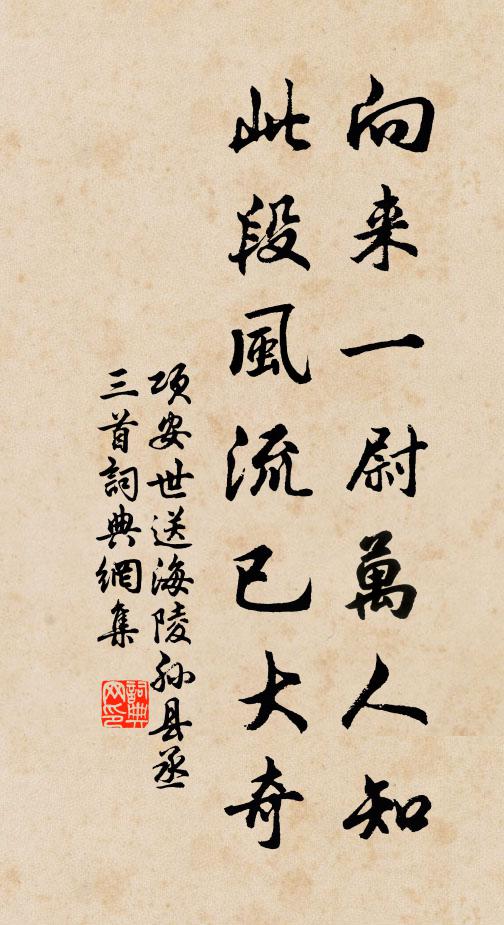 向来一尉萬人知
此段風流已大奇
项安世送海陵孙县丞
三首詞典網集
詞典網印